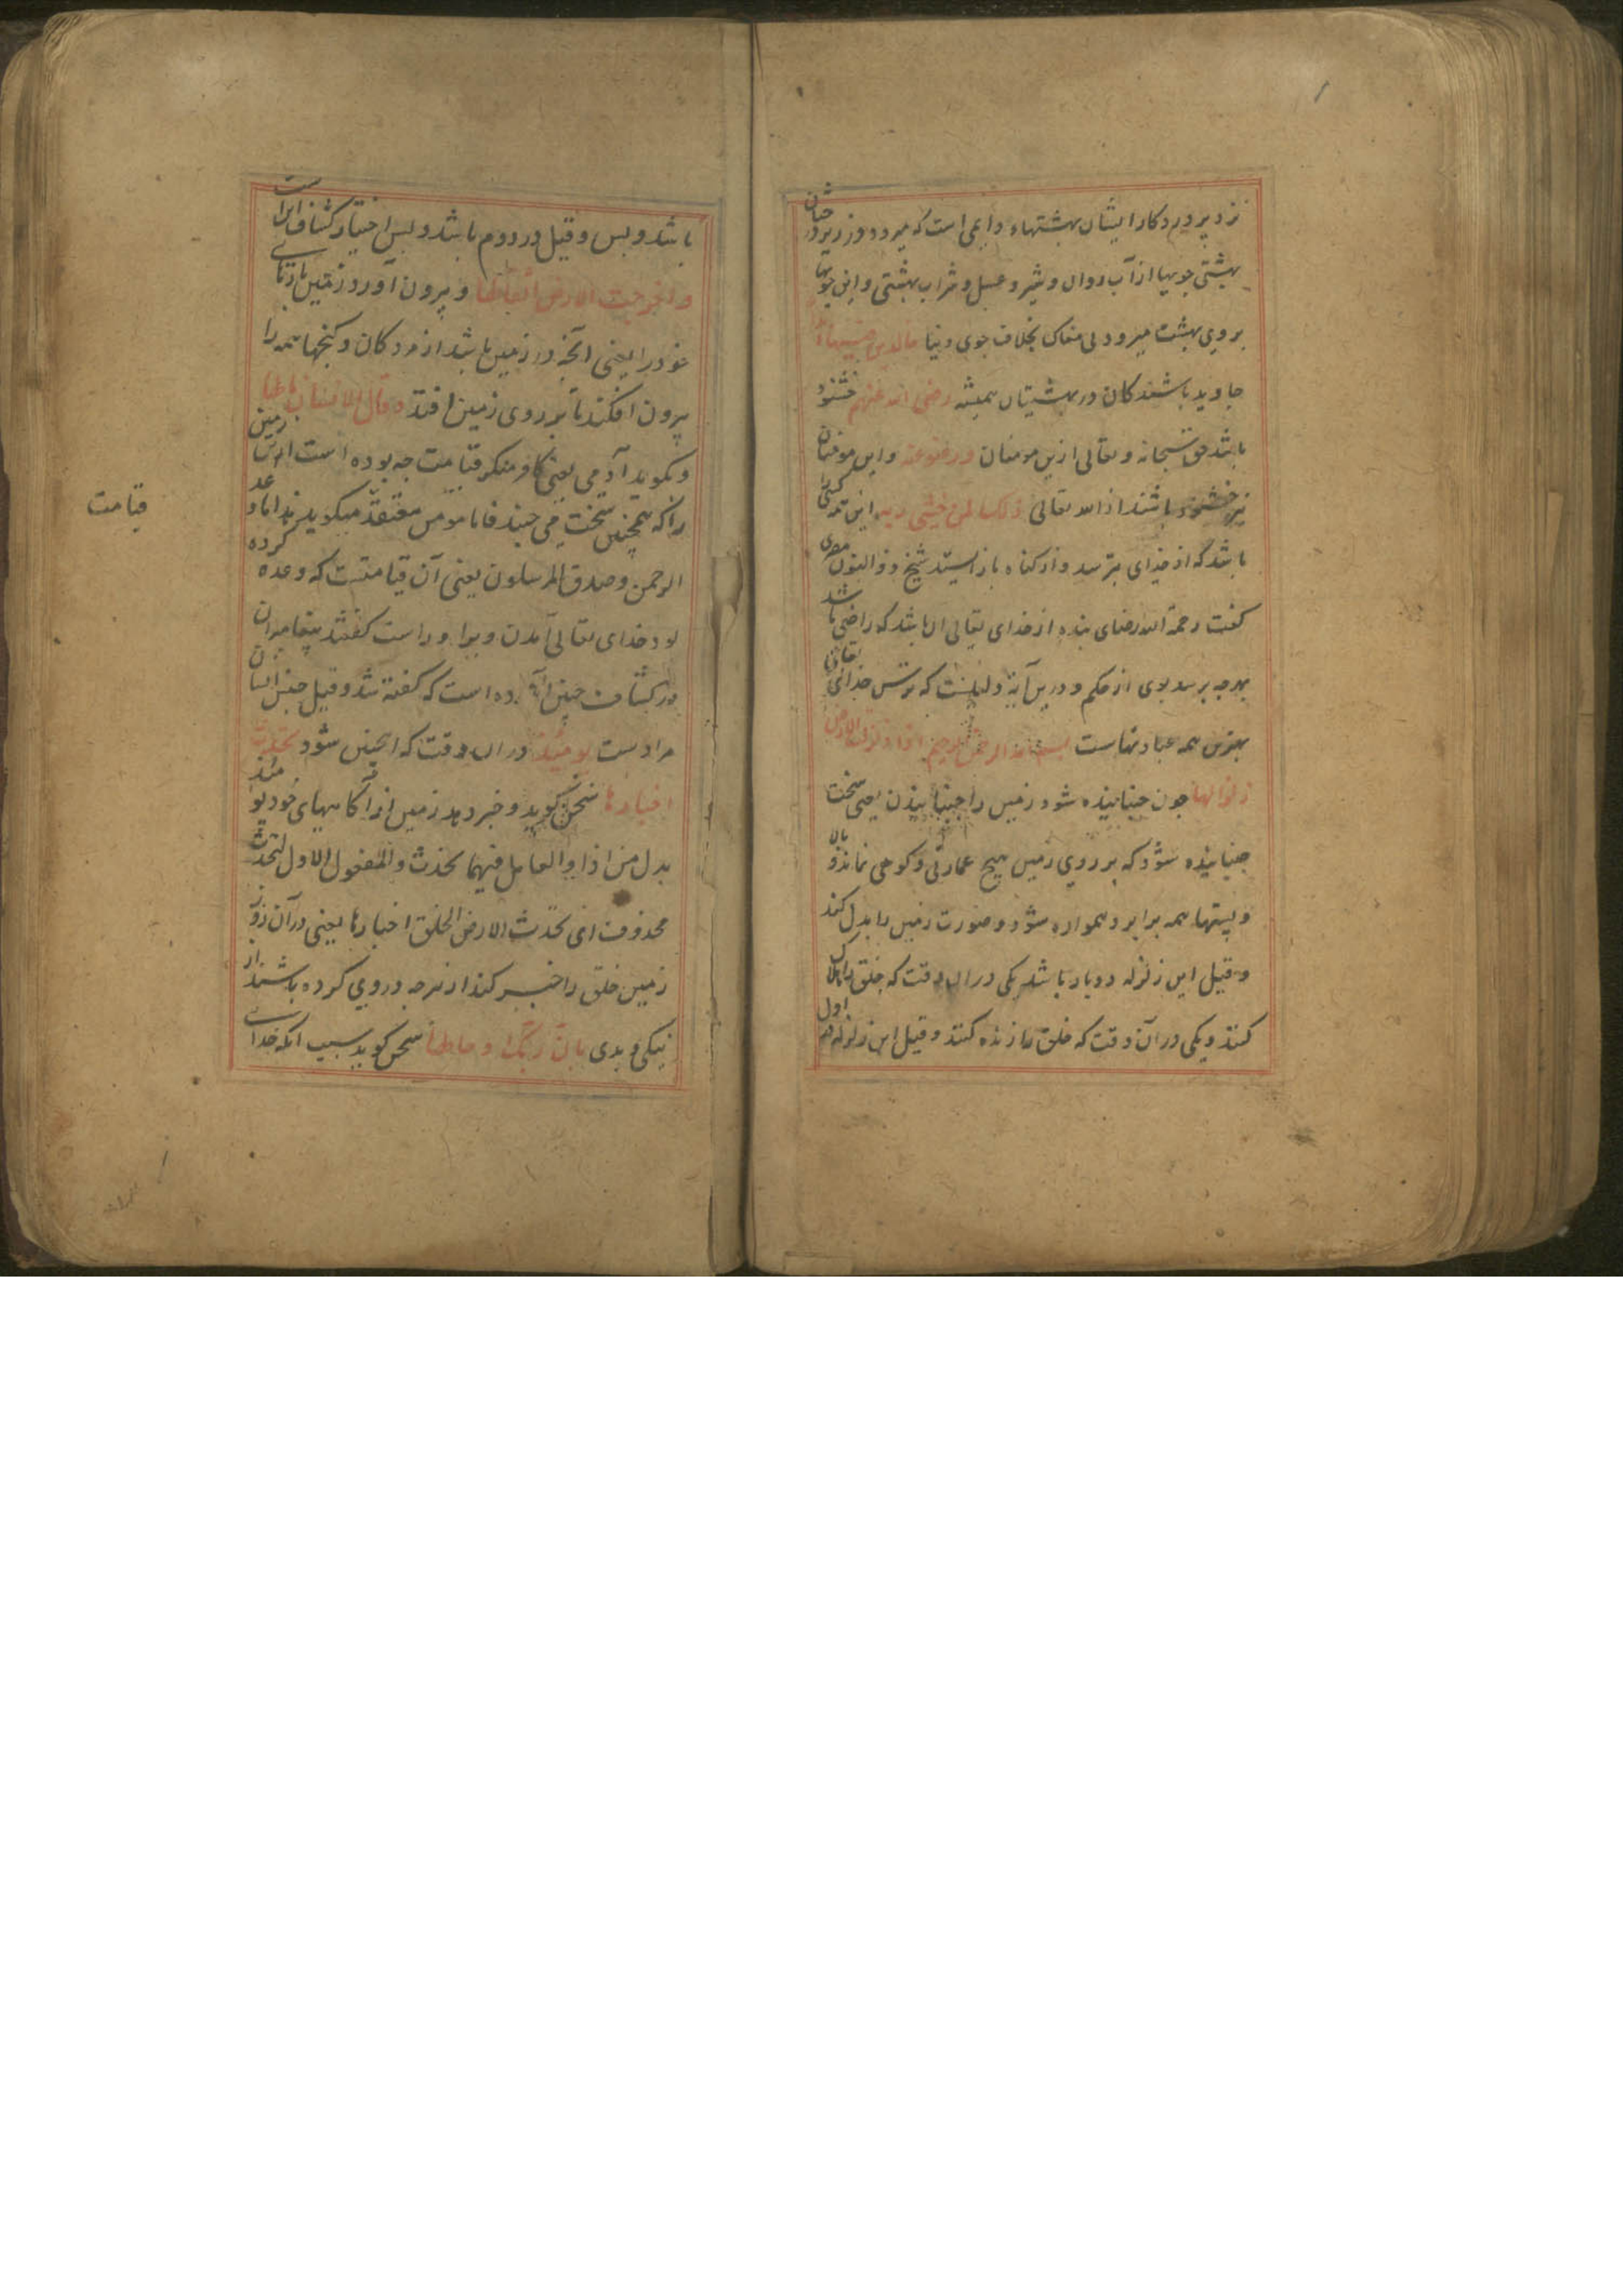 نزد پروردکار ایشان بهشتهاء دایمی است که میرود در زیر درختان
بهشتی جویها از آب روان و شیر و عسل و شراب بهشتی و این جویها
بروی بهشت میرود بی مغاک بخلاف جوی دنیا خالدین فیها ابدا
جاوید باشندکان در بهشتیان همیشه رضی الله عنهم خشنود
باشد حق سبحانه و تعالی ازین مومنان و رضوا عنه و این مومنان
نیز خشنود باشند از الله تعالی ذلک لمن خشی ربه این مر کسی را
باشد که از خدای بترسد و از کناه باز ایستد شیخ ذوالنون مصری
کفت رحمة الله رضای بنده از خدای تعالی ان باشد که راضی باشد
بهرچه برسد بوی از حکم و درین آیة دلیلست که ترس خدای تعالی
بهترین همه عبادتهاست بسم الله الرحمن الرحیم اذا زلزلت الارض
زلزالها جون جنبانیده شود زمین را جنبانیدن یعنی سخت
جنبانیده شود که بر روی زمین هیچ عمارتی و کوهی نماند و بالا
و پستیها همه برابر و همواره شود و صورت زمین را بدل کند
و قیل این زلزله دو بار باشد یکی در ان وقت که خلق را هلاک
کنند و یکی در آن وقت که خلق را زنده کنند و قیل این زلزله هم اول
باشد و بس و قیل در دوم باشد و بس اختیار کشاف اینست
و اخرجت الارض اثقالها و بیرون آورد زمین بارهای
خود را یعنی آنچه در زمین باشد از مردکان و کنجها همه را
بیرون افکند تا بر روی زمین افتد و قال الانسان مالها
و بکوید آدمی یعنی کافر منکر قیامت چه بوده است این زمین
را که همچنین سخت می جنبد فاما مومن معتقد میکوید هذا ما وعد
الرحمن و صدق المرسلون یعنی آن قیامتست که وعده کرده
بود خدای تعالی آمدن ویرا و راست کفتند پیغامبران
در کشاف چنین آورده است که کفته شد و قیل جنس انسان
مرادست یومئذ در ان وقت که اینچنین شود تحدث
اخبارها سخن کوید و خبر دهد زمین از آکاهیهای خود یومئذ
بدل من اذا و العامل فیهما تحدث و المفعول الاول لتحدث
محذوف ای تحدث الارض الخلق اخبارها یعنی در آن روز
زمین خلق را خبر کند از هرچه در وی کرده باشند از
نیکی و بدی بان ربک اوحی لها سخن کوید سبب انکه خدای
قیامت